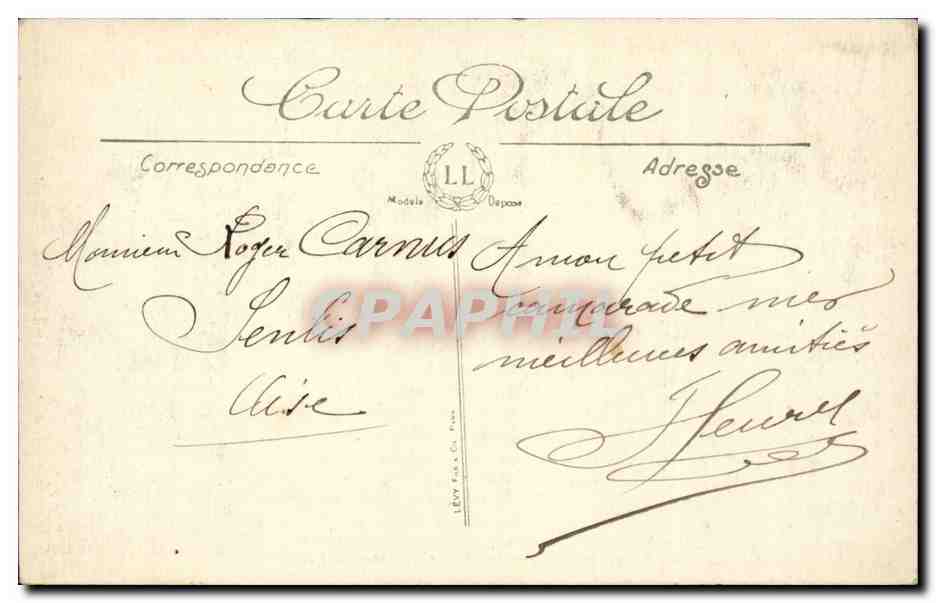 Carte Postale
Correspondance
LL
Adresse
Modèle Déposé
Monsieur Roger Carnus
Senlis
Oise
A mon petit
camarade mes
meilleures amitiés
CPAPHIL
LÉVY Fils & Cie Paris